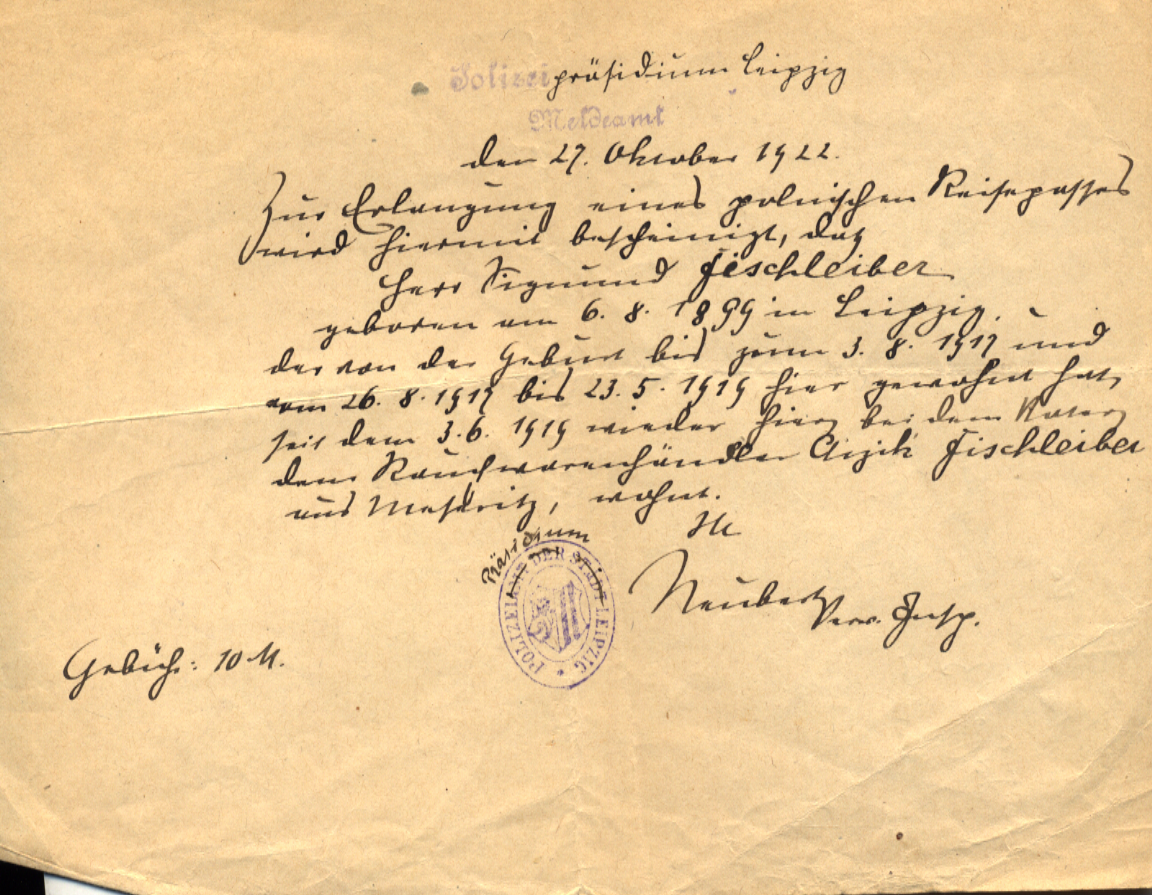 Polizeipräsidium Leipzig
Meldeamt
den 27. Oktober 1922.
Zur Erlangung eines polnischen Reisepasses
wird hiermit bescheinigt, daß
Herr Sigmund Fischleiber
geboren am 6. 8. 1899 in Leipzig,
der von der Geburt bis zum 3. 8. 1917 und
vom 26. 8. 1917 bis 23. 5. 1919 hier gewohnt hat,
seit dem 3. 6. 1919 wieder hier bei dem Vater,
dem Rauchwarenhändler Eizik Fischleiber
aus Meseritz, wohnt.
Präsidium
POLIZEIAMT DER STADT LEIPZIG
Neubert
Verw. Insp.
Gebühr: 10 M.